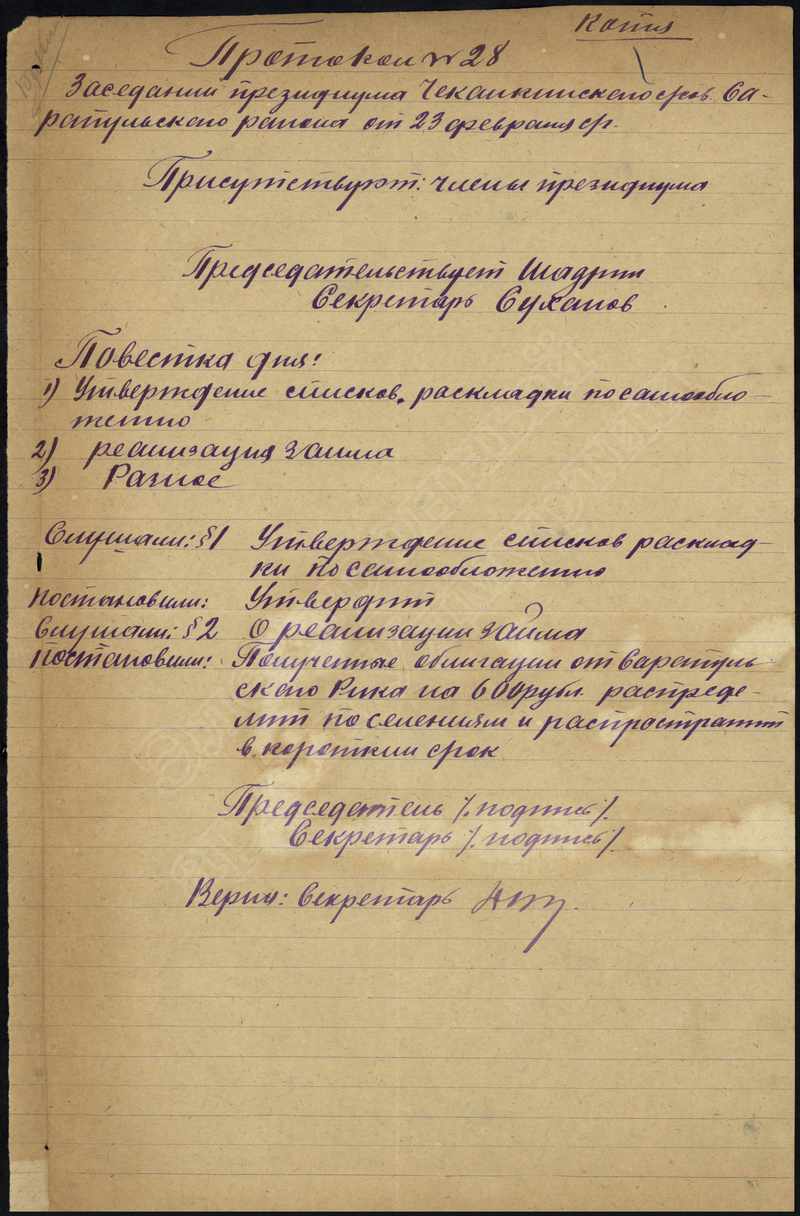 Копия
Протокол № 28
Заседании президиума Чекалкинского с/сов. Са-
рапульского района от 23 февраля с/г.
Присутствуют: члены президиума
Председательствует Шадрин
Секретарь Суханов
Повестка дня:
1) Утверждение списков раскладки по самообло-
жению
2) реализация займа
3) Разное
Слушали: §1 Утверждение списков расклад-
ки по самообложению
постановили: Утвердит
Слушали: §2 О реализации займа
постановили: Полученные облигации от Сарапуль-
ского Рика на 600 рубл. распреде-
лит по селениям и распространит
в короткий срок
Председатель /.подпись/.
Секретарь /.подпись/.
Верно: Секретарь